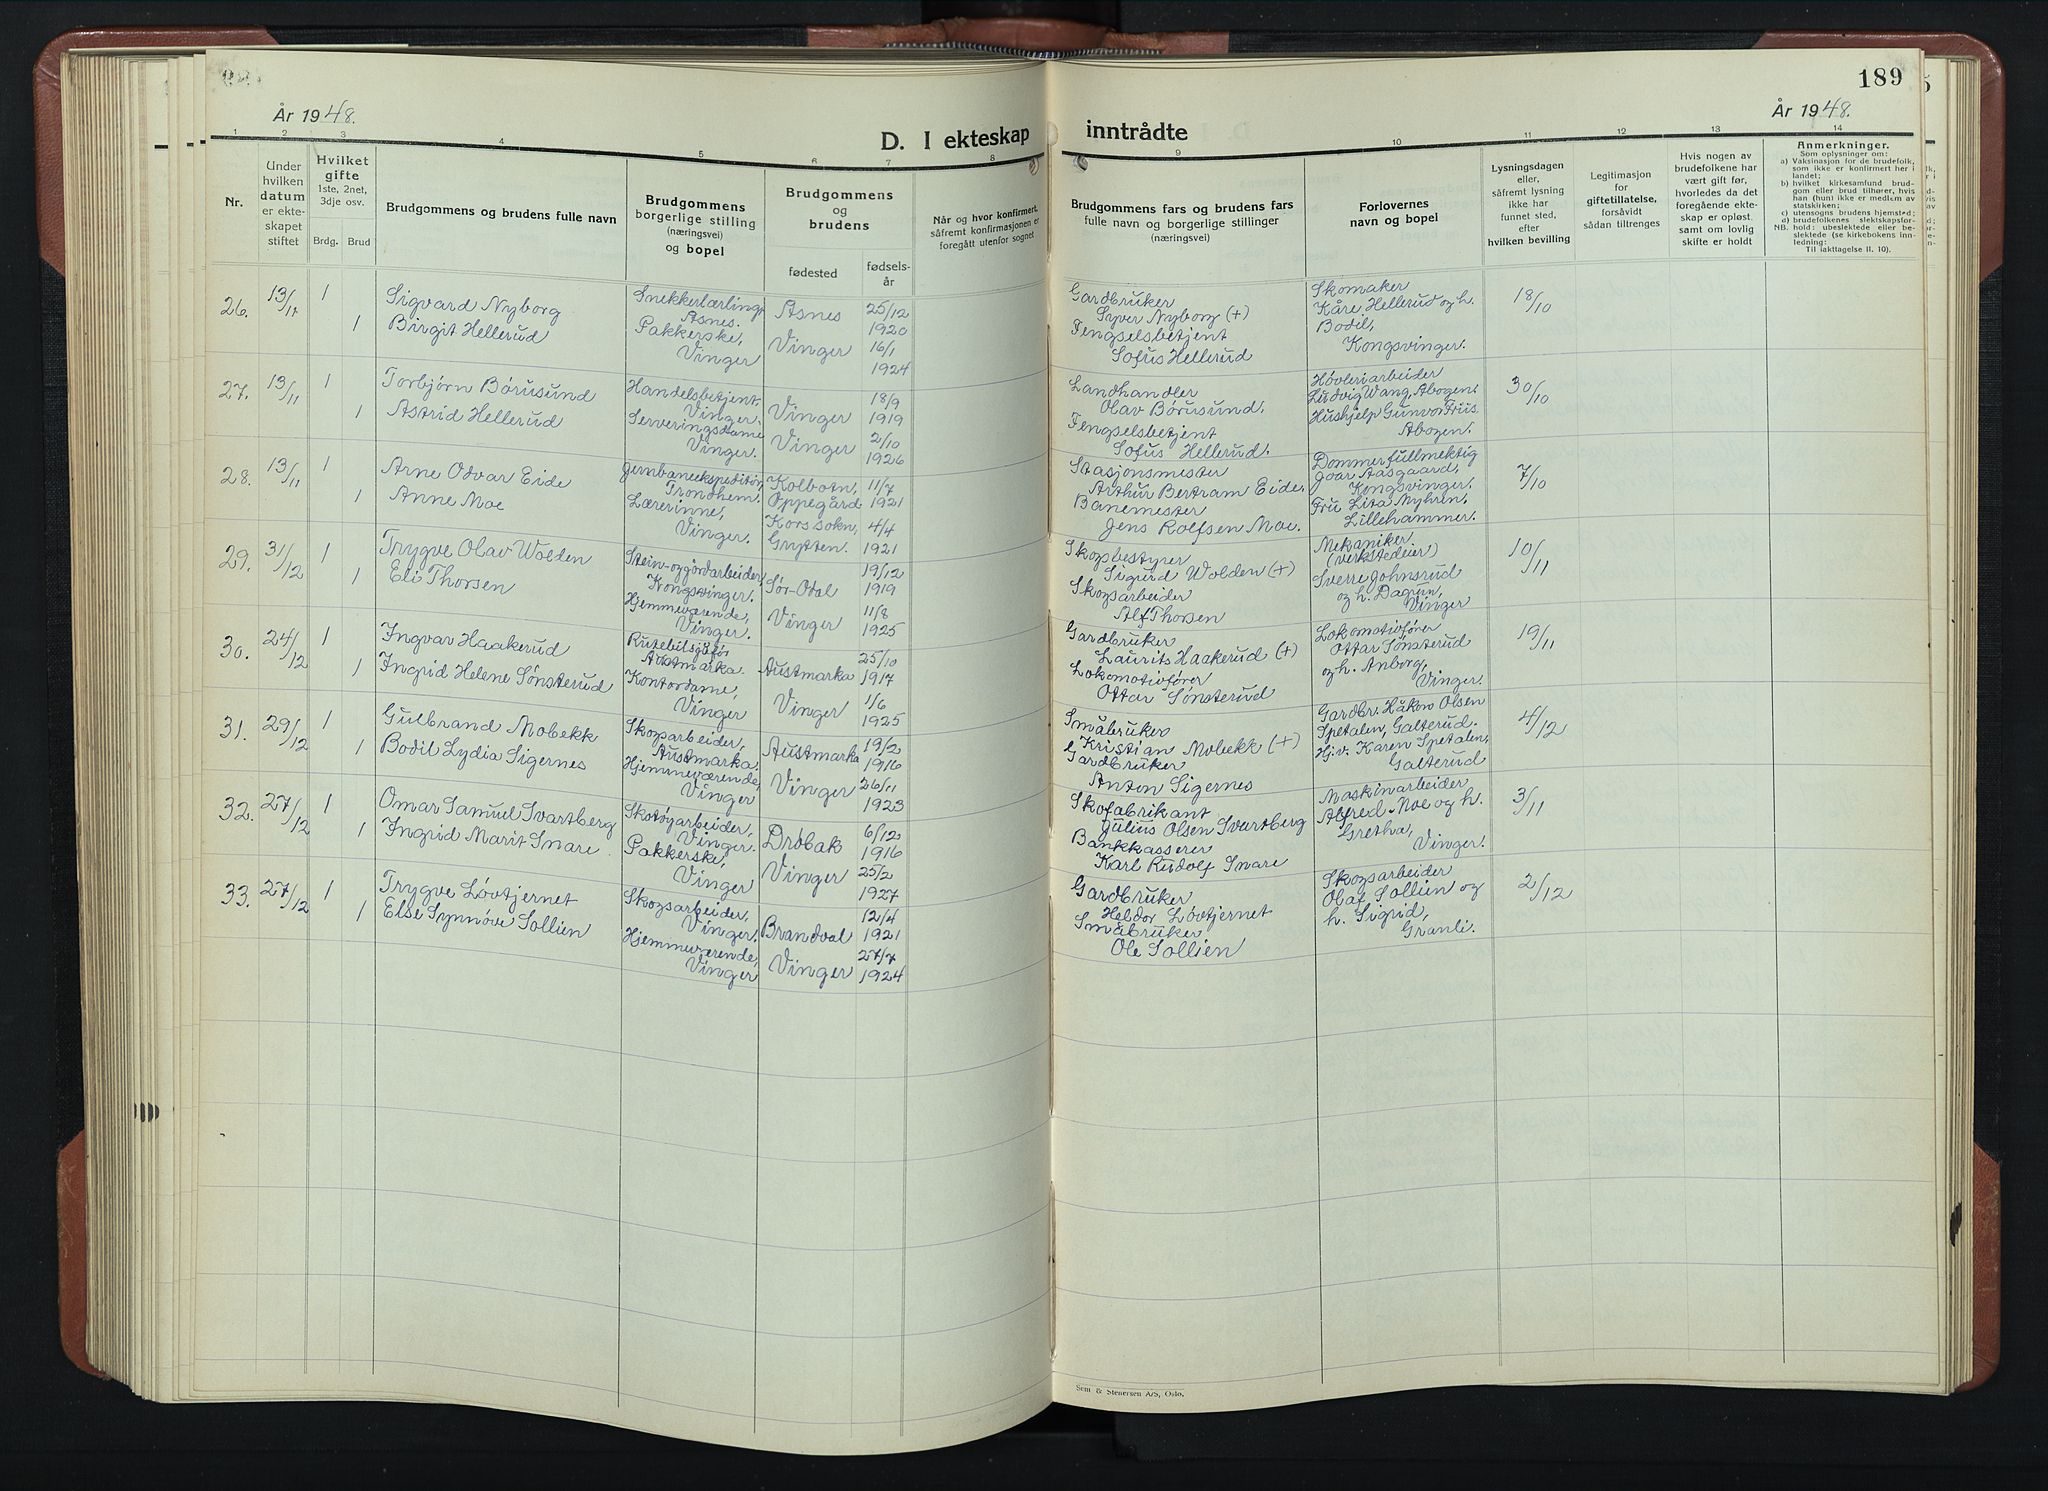 189
År 1948.
D. I ekteskap
inntrådte
År 1948.
1 2 3 4 5 6 7 8 9 10 11 12 13 14
Nr.
Under hvilken datum er ekteskapet stiftet
Hvilket gifte
1ste, 2net, 3dje osv.
Brdg. Brud
Brudgommens og brudens fulle navn
Brudgommens borgerlige stilling (næringsvei) og bopel
Brudgommens og brudens
fødested
fødselsår
Når og hvor konfirmert, såfremt konfirmasjonen er foregått utenfor sognet
Brudgommens fars og brudens fars fulle navn og borgerlige stillinger (næringsvei)
Forlovernes navn og bopel
Lysningsdagen eller, såfremt lysning ikke har funnet sted, efter hvilken bevilling
Legitimasjon for giftetillatelse, forsåvidt sådan tiltrenges
Hvis nogen av brudefolkene har vært gift før, hvorledes da det foregående ekteskap er opløst, samt om lovlig skifte er holdt
Anmerkninger.
Som oplysninger om:
a) Vaksinasjon for de brudefolk, som ikke er konfirmert her i landet;
b) hvilket kirkesamfund brudgom eller brud tilhører, hvis han (hun) ikke er medlem av statskirken;
c) utensogns brudens hjemsted;
d) brudefolkenes slektskapsforhold: ubeslektede eller beslektede (se kirkebokens innledning:
NB.
Til iakttagelse II. 10).
26. 13/11 1
Sigvard Nyborg
1 Birgit Hellerud
Snekkerlærling,
Åsnes.
Pakkerske,
Vinger
Åsnes 25/12 1920
Vinger 16/1 1924
Gardbruker
Syver Nyborg (+)
Fengselsbetjent
Sofus Hellerud
Skomaker
Kåre Hellerud og h.
Bodil,
Kongsvinger.
18/10
27. 13/11 1
Torbjørn Børusund
1 Astrid Hellerud
Handelsbetjent,
Vinger.
Serveringsdame
Vinger.
Vinger 18/9 1919
Vinger 2/10 1926
Landhandler
Olav Børusund.
Fengselsbetjent
Sofus Hellerud.
Høvleriarbeider
Ludvig Wang, Åbogen.
Hushjelp Gunvor Friis
Åbogen.
30/10
28. 13/11 1
Arne Odvar Eide
1 Anne Moe
Jernbaneekspeditør,
Trondhem.
Lærerinne,
Vinger.
Kolbotn, Oppegård 11/7 1921
Kors sokn, Grytten. 4/4 1921
Stasjonsmester
Arthur Bertram Eide.
Banemester
Jens Rolfsen Moe.
Dommerfullmektig
Joar Aasgaard,
Kongsvinger.
Fru Lita Nyhrin,
Lillehammer.
7/10
29. 31/12 1
Trygve Olav Wolden
1 Eli Thorsen
Stein- og jordarbeider,
Kongsvinger.
Hjemmeværende,
Vinger.
Sør-Odal 19/12 1919
Vinger 11/8 1925
Skogbestyrer
Sigurd Wolden (+)
Skogsarbeider
Alf Thorsen
Mekaniker
(verkstedeier)
Sverre Johnsrud
og h. Dagrun,
Vinger
10/11
30. 24/12 1
Ingvar Haakerud
1 Ingrid Helene Sønsterud
Rutebilsjåfør
Austmarka.
Kontordame,
Vinger
Austmarka 25/10 1917
Vinger 1/6 1925
Gardbruker
Laurits Haakerud (+)
Lokomotivfører
Ottar Sønsterud
Lokomotivfører
Ottar Sønsterud
og h. Anborg,
Vinger.
19/11
31. 29/12 1
Gulbrand Mobekk
1 Bodil Lydia Sigernes
Skogsarbeider,
Austmarka.
Hjemmeværende,
Vinger
Austmarka 19/2 1916
Vinger 26/11 1923
Småbruker
Kristian Mobekk (+)
Gardbruker
Anton Sigernes
Gardbr. Håkon Olsen
Spetalen, Galterud.
Hjv. Karen Spetalen,
Galterud
4/12
32. 27/12 1
Omar Samuel Svartberg
1 Ingrid Marit Snare.
Skotøyarbeider,
Vinger.
Pakkerske,
Vinger
Drøbak 6/12 1916
Vinger 25/2 1927
Skofabrikant
Julius Olsen Svartberg
Bankkasserer
Karl Rudolf Snare
Maskinarbeider
Alfred Moe og h.
Gretha,
Vinger.
3/11
33. 27/12 1
Trygve Løvtjernet
1 Else Synnøve Sollien
Skogsarbeider,
Vinger.
Hjemmeværende,
Vinger
Brandval 12/4 1921
Vinger 27/7 1924
Gardbruker
Heldor Løvtjernet
Småbruker
Ole Sollien
Skogsarbeider
Olaf Sollien og
h. Sigrid,
Granli.
2/12
Sem & Stenersen A/S, Oslo.